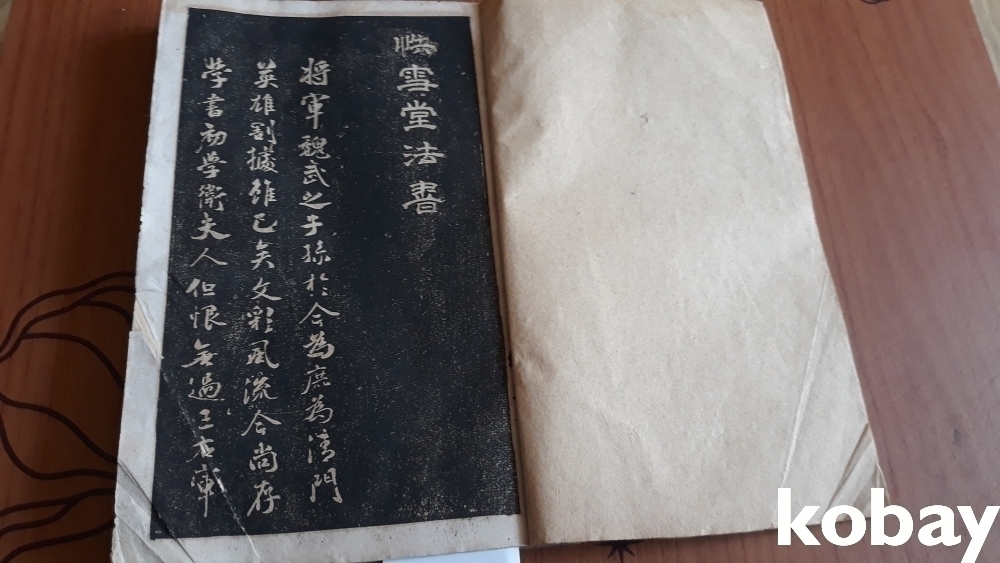 映雪堂法書
将軍魏武之子孫於今為庶為清門
英雄割據雖已矣文彩風流今尚存
學書初學衛夫人但恨無過王右軍
kobay